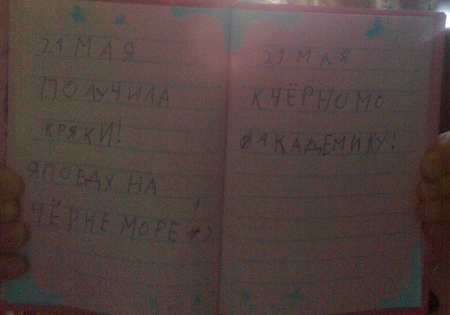 21 МАЯ
ПОЛУЧИЛА
КРЯКИ!
Я ПОЕДУ НА
ЧЁРНЕ МОРЕ
21 МАЯ
К ЧЁРНОМО
АКАДЕМИКУ!